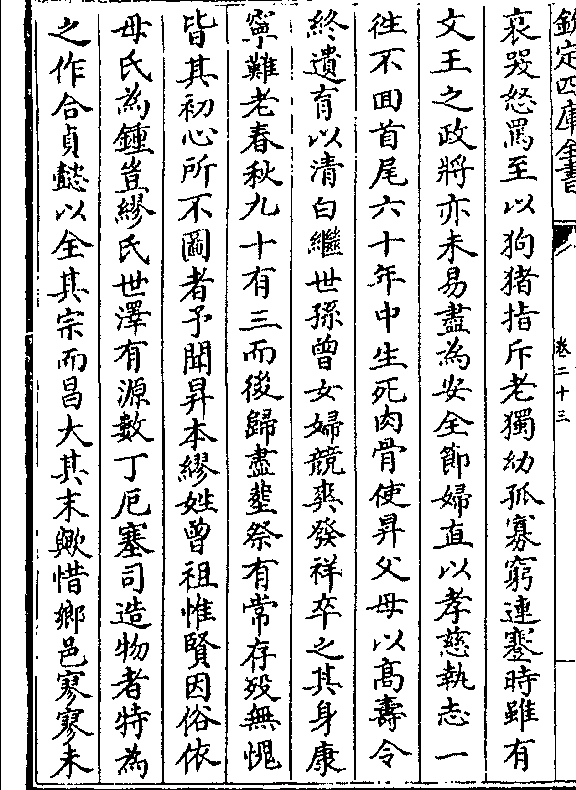 欽定四庫全書
卷二十三
裒毀怒罵至以狗猪指斥老獨幼孤寡窮連蹇時雖有
文王之政將亦未易盡為安全節婦直以孝慈執志一
往不回首尾六十年中生死肉骨使昇父母以髙壽令
終遺有以清白繼世孫曾女婦競爽發祥卒之其身康
寧難老春秋九十有三而後歸盡塟祭有常存殁無愧
皆其初心所不圖者予聞昇本繆姓曾祖惟賢因俗依
母氏為鍾豈繆氏世澤有源數丁厄塞司造物者特為
之作合貞懿以全其宗而昌大其末歟惜鄉邑寥寥未